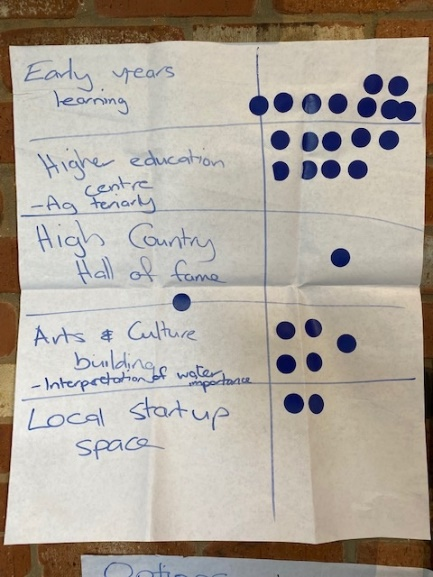 Early years
learning
Higher education
centre
- Ag teriarly
High Country
Hall of fame
Arts & Culture
building
- Interpretation of water
importance
Local startup
space
Options